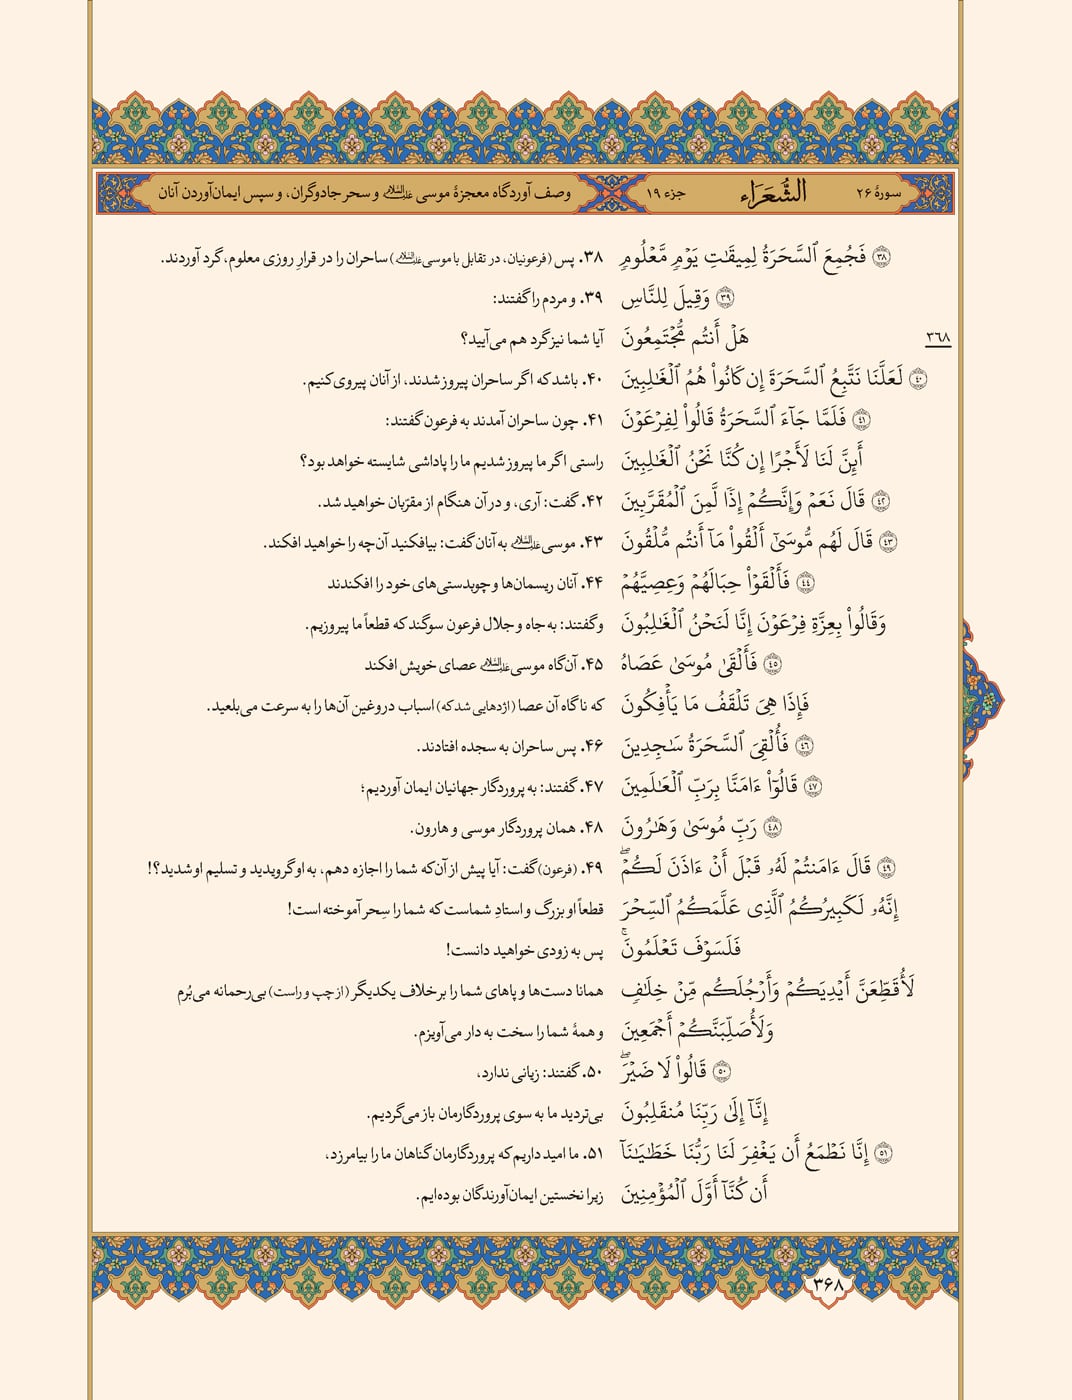 سورۀ ۲۶ الشُّعَرَاء جزء ۱۹ وصف آوردگاه معجزۀ موسی علیه‌السلام و سحر جادوگران، و سپس ایمان‌آوردن آنان
٣٨ فَجُمِعَ ٱلسَّحَرَةُ لِمِيقَٰتِ يَوۡمٖ مَّعۡلُومٖ ۳۸. پس (فرعونیان، در تقابل با موسی علیه‌السلام) ساحران را در قرارِ روزی معلوم، گرد آوردند.
٣٩ وَقِيلَ لِلنَّاسِ ۳۹. و مردم را گفتند:
٣٦٨ هَلۡ أَنتُم مُّجۡتَمِعُونَ آیا شما نیز گرد هم می‌آیید؟
٤٠ لَعَلَّنَا نَتَّبِعُ ٱلسَّحَرَةَ إِن كَانُواْ هُمُ ٱلۡغَٰلِبِينَ ۴۰. باشد که اگر ساحران پیروز شدند، از آنان پیروی کنیم.
٤١ فَلَمَّا جَآءَ ٱلسَّحَرَةُ قَالُواْ لِفِرۡعَوۡنَ ۴۱. چون ساحران آمدند به فرعون گفتند:
أَئِنَّ لَنَا لَأَجۡرًا إِن كُنَّا نَحۡنُ ٱلۡغَٰلِبِينَ راستی اگر ما پیروز شدیم ما را پاداشی شایسته خواهد بود؟
٤٢ قَالَ نَعَمۡ وَإِنَّكُمۡ إِذٗا لَّمِنَ ٱلۡمُقَرَّبِينَ ۴۲. گفت: آری، و در آن هنگام از مقرّبان خواهید شد.
٤٣ قَالَ لَهُم مُّوسَىٰٓ أَلۡقُواْ مَآ أَنتُم مُّلۡقُونَ ۴۳. موسی علیه‌السلام به آنان گفت: بیافکنید آن‌چه را خواهید افکند.
٤٤ فَأَلۡقَوۡاْ حِبَالَهُمۡ وَعِصِيَّهُمۡ ۴۴. آنان ریسمان‌ها و چوبدستی‌های خود را افکندند
وَقَالُواْ بِعِزَّةِ فِرۡعَوۡنَ إِنَّا لَنَحۡنُ ٱلۡغَٰلِبُونَ و گفتند: به جاه و جلال فرعون سوگند که قطعاً ما پیروزیم.
٤٥ فَأَلۡقَىٰ مُوسَىٰ عَصَاهُ ۴۵. آن‌گاه موسی علیه‌السلام عصای خویش افکند
فَإِذَا هِيَ تَلۡقَفُ مَا يَأۡفِكُونَ که ناگاه آن عصا (اژدهایی شد که) اسباب دروغین آن‌ها را به سرعت می‌بلعید.
٤٦ فَأُلۡقِيَ ٱلسَّحَرَةُ سَٰجِدِينَ ۴۶. پس ساحران به سجده افتادند.
٤٧ قَالُوٓاْ ءَامَنَّا بِرَبِّ ٱلۡعَٰلَمِينَ ۴۷. گفتند: به پروردگار جهانیان ایمان آوردیم؛
٤٨ رَبِّ مُوسَىٰ وَهَٰرُونَ ۴۸. همان پروردگار موسی و هارون.
٤٩ قَالَ ءَامَنتُمۡ لَهُۥ قَبۡلَ أَنۡ ءَاذَنَ لَكُمۡۖ ۴۹. (فرعون) گفت: آیا پیش از آن‌که شما را اجازه دهم، به او گرویدید و تسلیم او شدید؟!
إِنَّهُۥ لَكَبِيرُكُمُ ٱلَّذِي عَلَّمَكُمُ ٱلسِّحۡرَ قطعاً او بزرگ و استادِ شماست که شما را سِحر آموخته است!
فَلَسَوۡفَ تَعۡلَمُونَۚ پس به زودی خواهید دانست!
لَأُقَطِّعَنَّ أَيۡدِيَكُمۡ وَأَرۡجُلَكُم مِّنۡ خِلَٰفٖ همانا دست‌ها و پاهای شما را بر خلاف یکدیگر (از چپ و راست) بی‌رحمانه می‌بُرم
وَلَأُصَلِّبَنَّكُمۡ أَجۡمَعِينَ و همۀ شما را سخت به دار می‌آویزم.
٥٠ قَالُواْ لَا ضَيۡرَۖ ۵۰. گفتند: زیانی ندارد،
إِنَّآ إِلَىٰ رَبِّنَا مُنقَلِبُونَ بی‌تردید ما به سوی پروردگارمان باز می‌گردیم.
٥١ إِنَّا نَطۡمَعُ أَن يَغۡفِرَ لَنَا رَبُّنَا خَطَٰيَٰنَآ ۵۱. ما امید داریم که پروردگارمان گناهان ما را بیامرزد،
أَن كُنَّآ أَوَّلَ ٱلۡمُؤۡمِنِينَ زیرا نخستین ایمان‌آورندگان بوده‌ایم.
۳۶۸